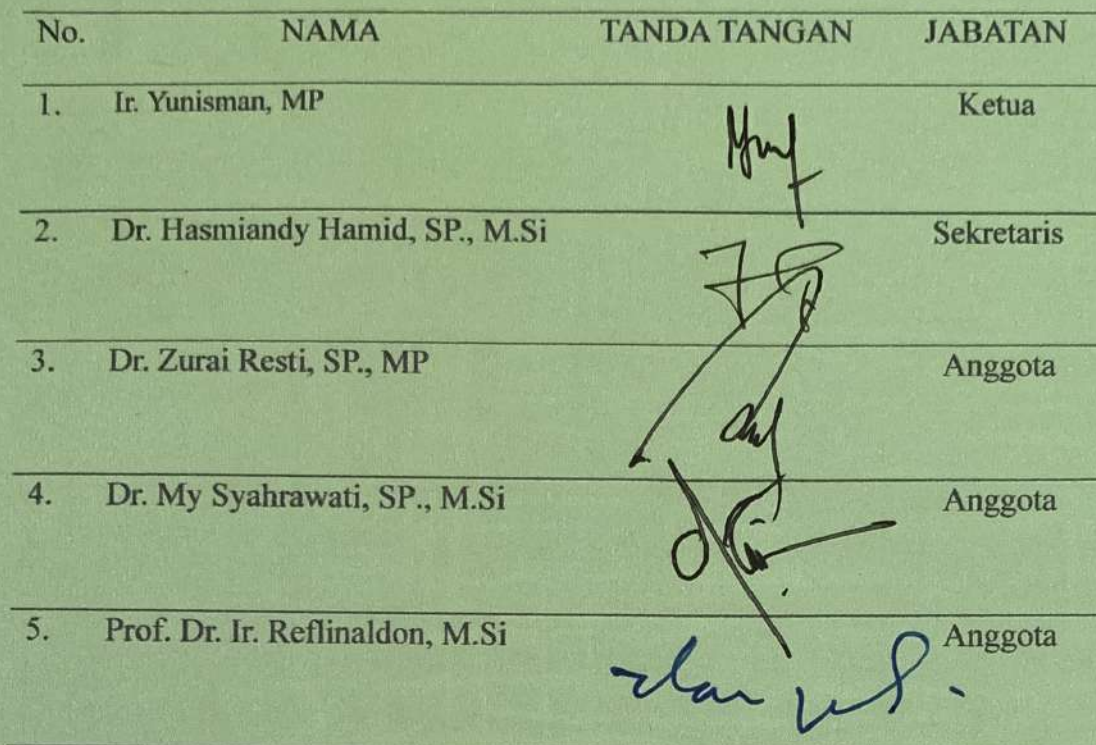 No. NAMA TANDA TANGAN JABATAN
1. Ir. Yunisman, MP Ketua
2. Dr. Hasmiandy Hamid, SP., M.Si Sekretaris
3. Dr. Zurai Resti, SP., MP Anggota
4. Dr. My Syahrawati, SP., M.Si Anggota
5. Prof. Dr. Ir. Reflinaldon, M.Si Anggota